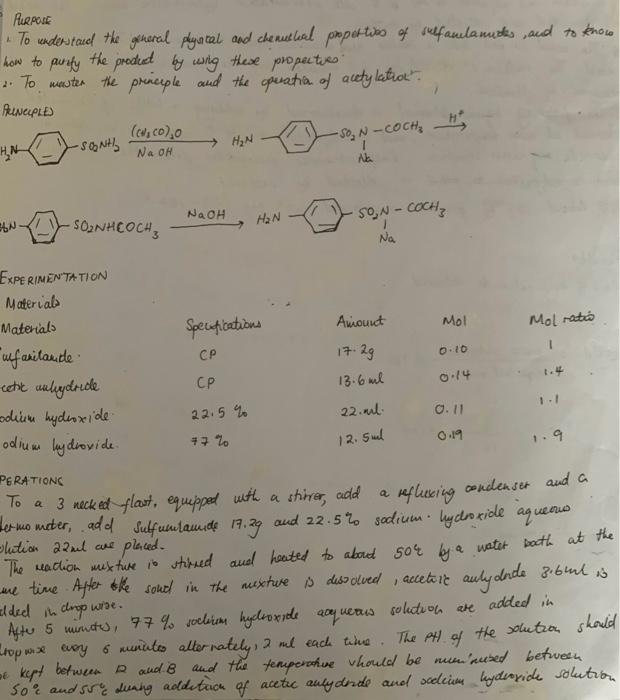 PURPOSE
1. To understand the general physical and chemical properties of sulfanilamides, and to know
how to purify the product by using these properties.
2. To master the principle and the operation of acetylation.
PRINCIPLES
H2N- -SO2NH2 (CH3CO)2O NaOH H2N- -SO2N-COCH3 H+
Na
H2N- -SO2NHCOCH3 NaOH H2N- -SO2N-COCH3
Na
EXPERIMENTATION
Materials
Materials Specifications Amount Mol Mol ratio
ulfanilamide CP 17.2g 0.10 1
cetic anhydride CP 13.6 ml 0.14 1.4
odium hydroxide 22.5 % 22.ml 0.11 1.1
odium hydroxide 77 % 12.5ml 0.19 1.9
PERATIONS
To a 3 necked flast, equipped with a stirrer, add a refluxing condenser and a
hermometer, add Sulfanilamide 17.2g and 22.5% sodium hydroxide aqueous
olution 22ml are placed.
The reaction mixture is stirred and heated to about 50℃ by a water bath at the
me time. After the solid in the mixture is dissolved, acetic anhydride 3.6ml is
dded in drop wise.
After 5 minutes, 77 % sodium hydroxide aqueous solution are added in
dropwise every 5 minutes alternately, 2 ml each time. The PH of the solution should
be kept between 12 and 13 and the temperature should be between
50℃ and 55℃ during addition of acetic anhydride and sodium hydroxide solution